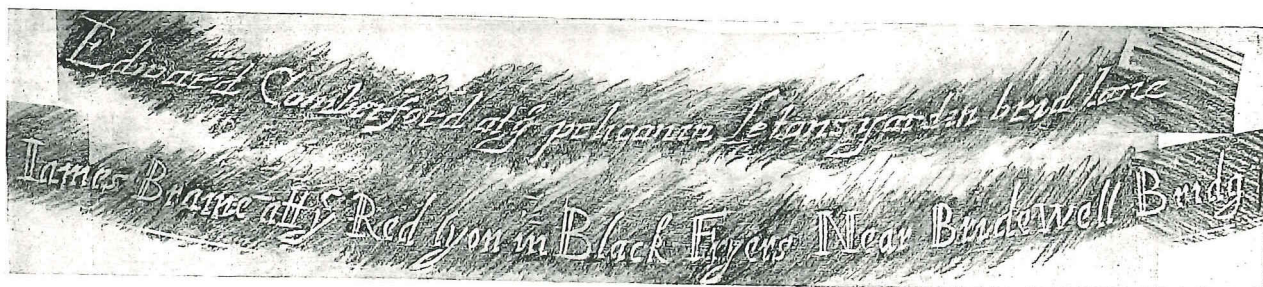 Edward Comborford at yͤ pohcanin Letans yard in brid lane
Iames Brame att yͤ Red lyon in Black Fryers Near Bridewell Bridg